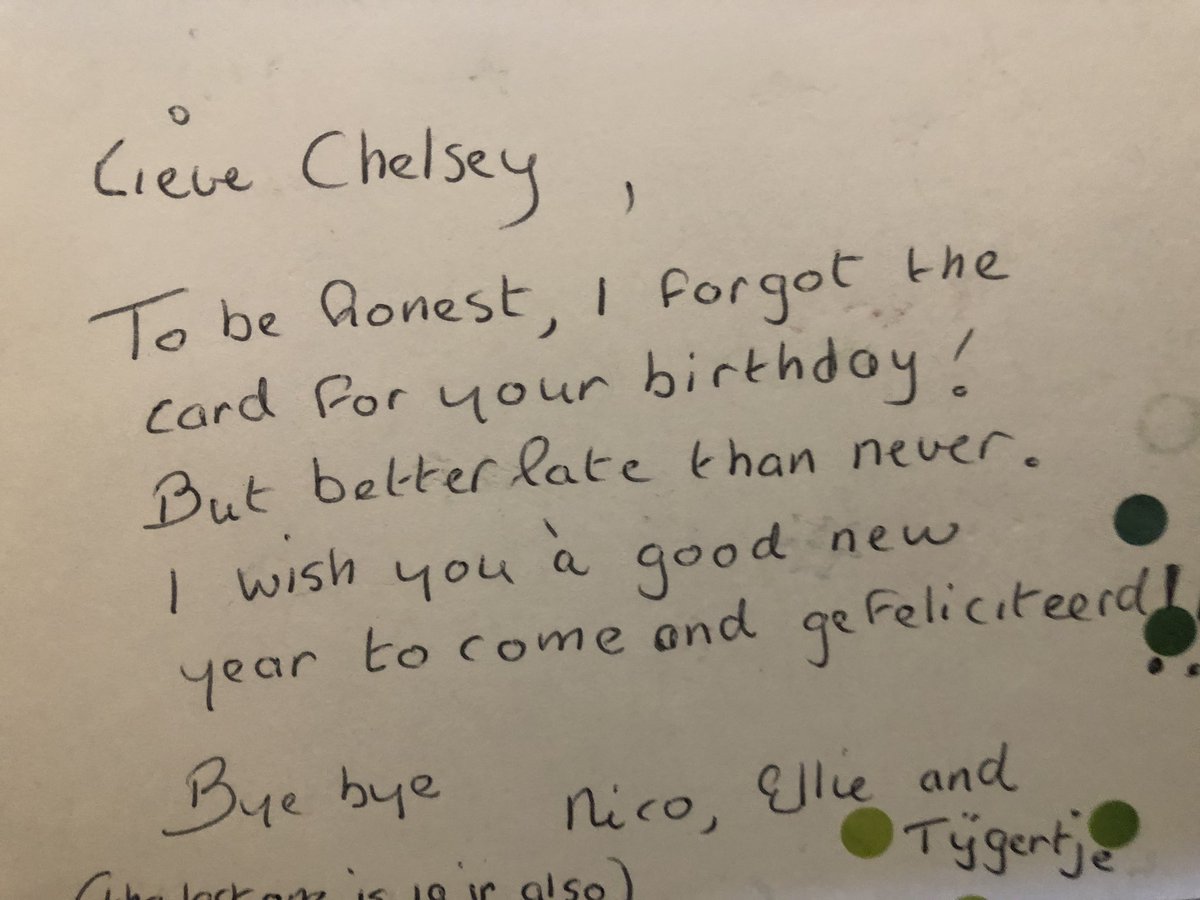 Lieve Chelsey,
To be honest, I forgot the
card for your birthday!
But better late than never.
I wish you à good new
year to come and gefeliciteerd!!
Bye bye Nico, Ellie and
Tijgertje
(the last one is also)